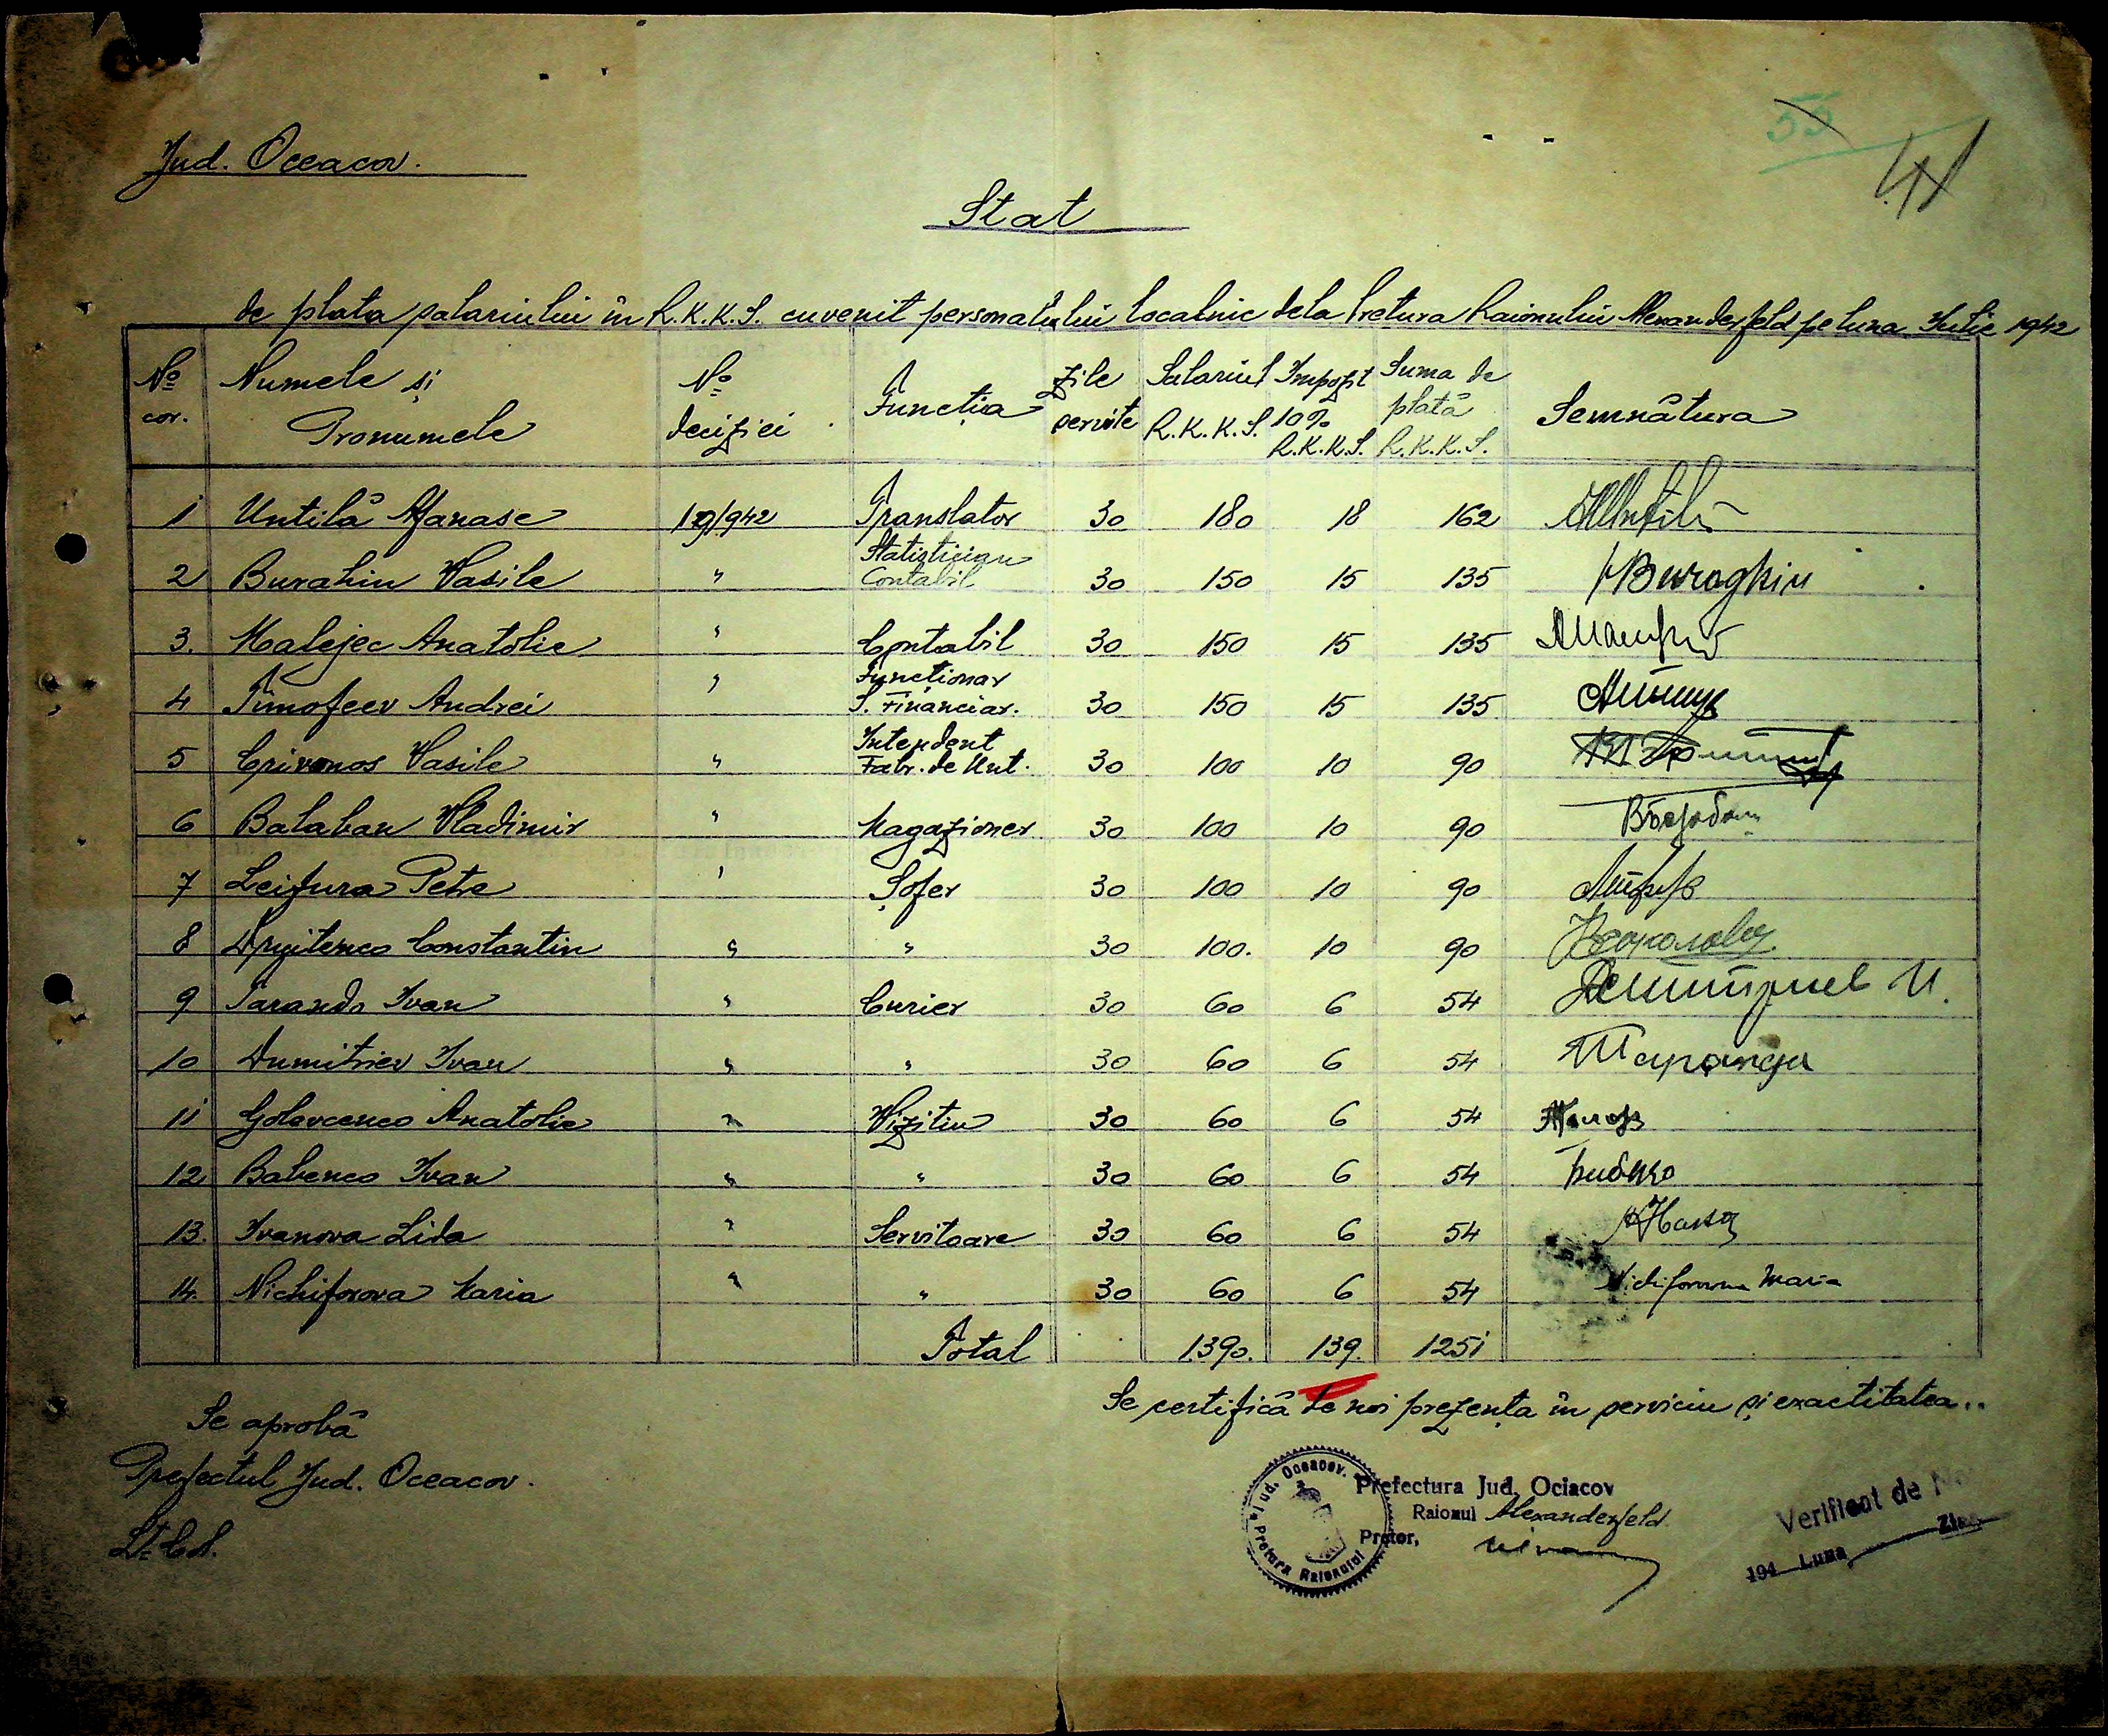 55
41
Jud. Oceacov.
Stat
de plata salariului în R.K.K.S. cuvenit personalului localnic dela Pretura Raionului Alexanderfeld pe luna Iulie 1942
No cor. Numele și Pronumele No deciziei Funcția Zile servite Salariul R.K.K.S. Impozit 10% R.K.K.S. Suma de plată R.K.K.S. Semnătura
1 Untilă Afanase 19/942 Translator 30 180 18 162
2 Burahin Vasile " Statistician Contabil 30 150 15 135 Buraghin
3. Malejec Anatolie " Contabil 30 150 15 135
4 Timofeev Andrei " Funcționar S. Financiar. 30 150 15 135
5 Crivonos Vasile " Intendent Fabr. de Unt. 30 100 10 90
6 Balaban Vladimir " Magazioner 30 100 10 90
7 Leifura Petre " Șofer 30 100 10 90
8 Constantin " " 30 100. 10 90
9 Taranda Ivan " Curier 30 60 6 54 Демитриев И.
10 Dumitriev Ivan " " 30 60 6 54 Таранда
11 Golovcenco Anatolie " Vizitiu 30 60 6 54
12 Babenco Ivan " " 30 60 6 54
13. Ivanova Lida " Servitoare 30 60 6 54
14. Nichiforova Maria " " 30 60 6 54 Nichiforovna Maria
Total 1390. 139. 1251
Se certifică de noi prezența în serviciu și exactitatea..
Se aprobă
Prefectul Jud. Oceacov.
Lt. Col.
Jud. Oceacov. Pretura Raionului
Prefectura Jud. Ociacov
Raionul Alexanderfeld
Pretor,
Verificat de
194 Luna Ziua